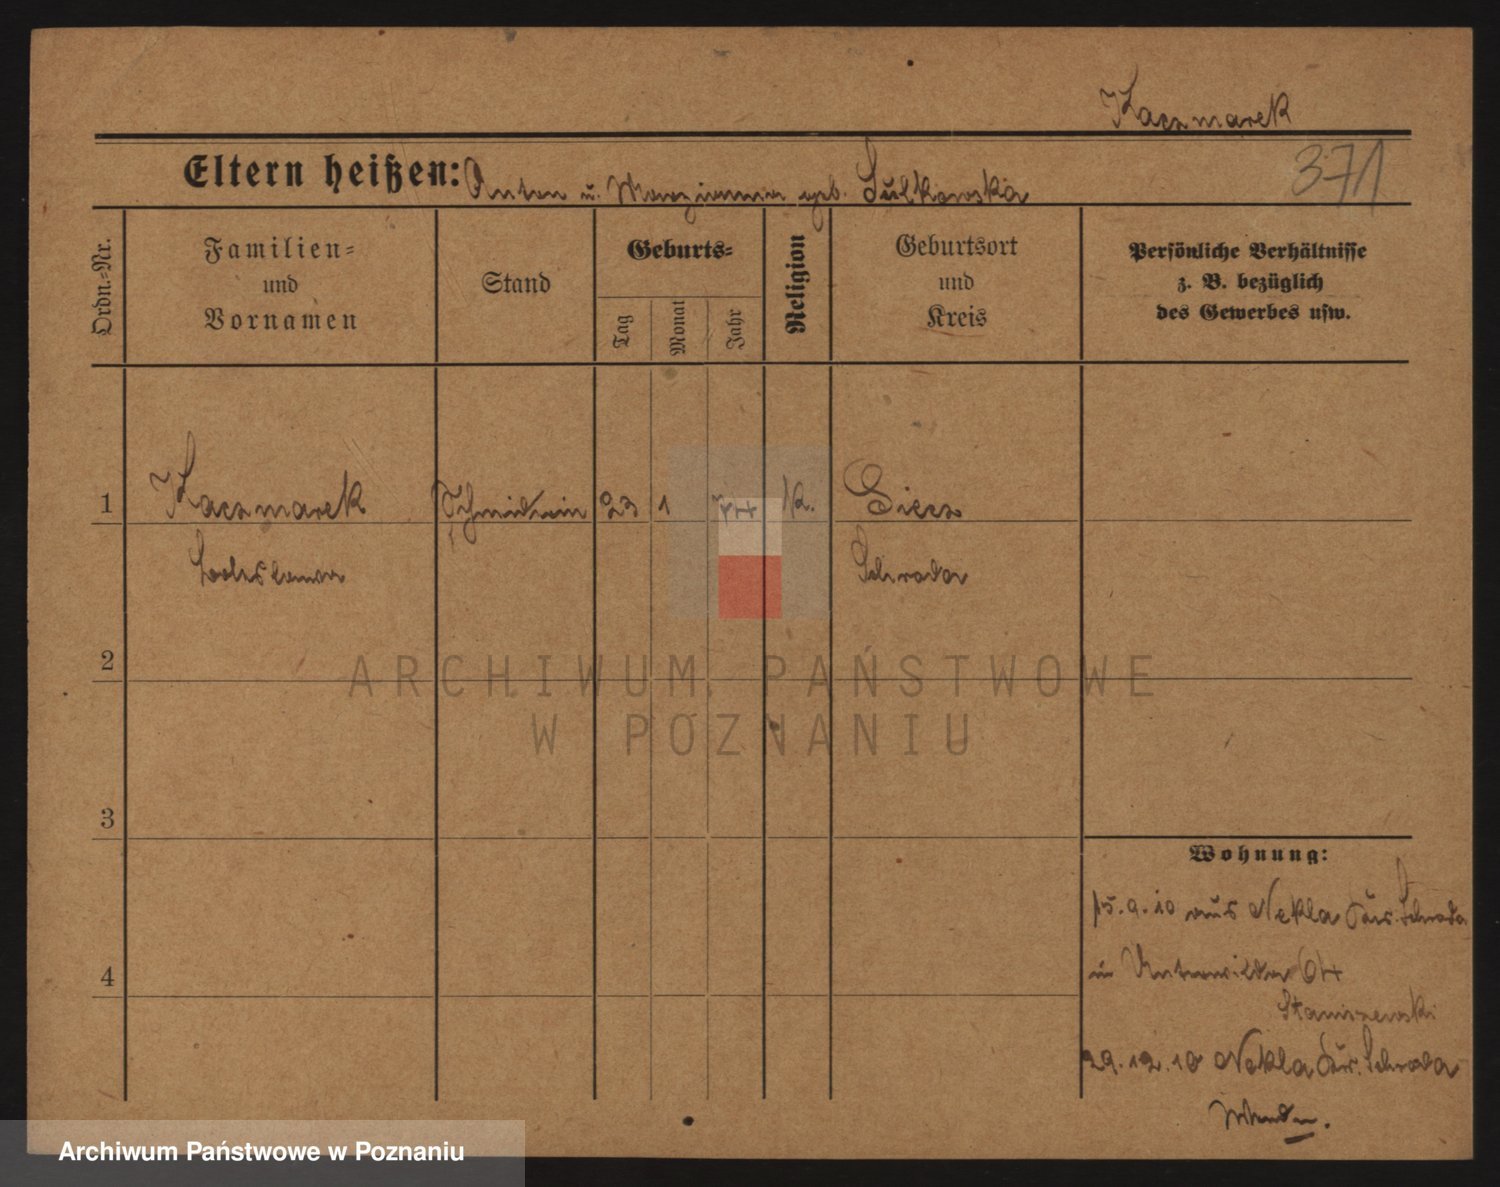 Kaczmarek
Eltern heißen: Anton u. Maryanna geb. Sulkowska
371
Ordn.-Nr.
Familien-
und
Vornamen
Stand
Geburts-
Tag
Monat
Jahr
Religion
Geburtsort
und
Kreis
Persönliche Verhältnisse
z. B. bezüglich
des Gewerbes usw.
1 Kaczmarek 23 1 K. Siecz
Schroda
2
3
4
Wohnung:
15.9.10 aus Nekla Kr. Schroda
in Unterwilda 64
Staniszewski
29.12.10 Nekla Kr. Schroda
Wenden.
ARCHIWUM PAŃSTWOWE
W POZNANIU
Archiwum Państwowe w Poznaniu